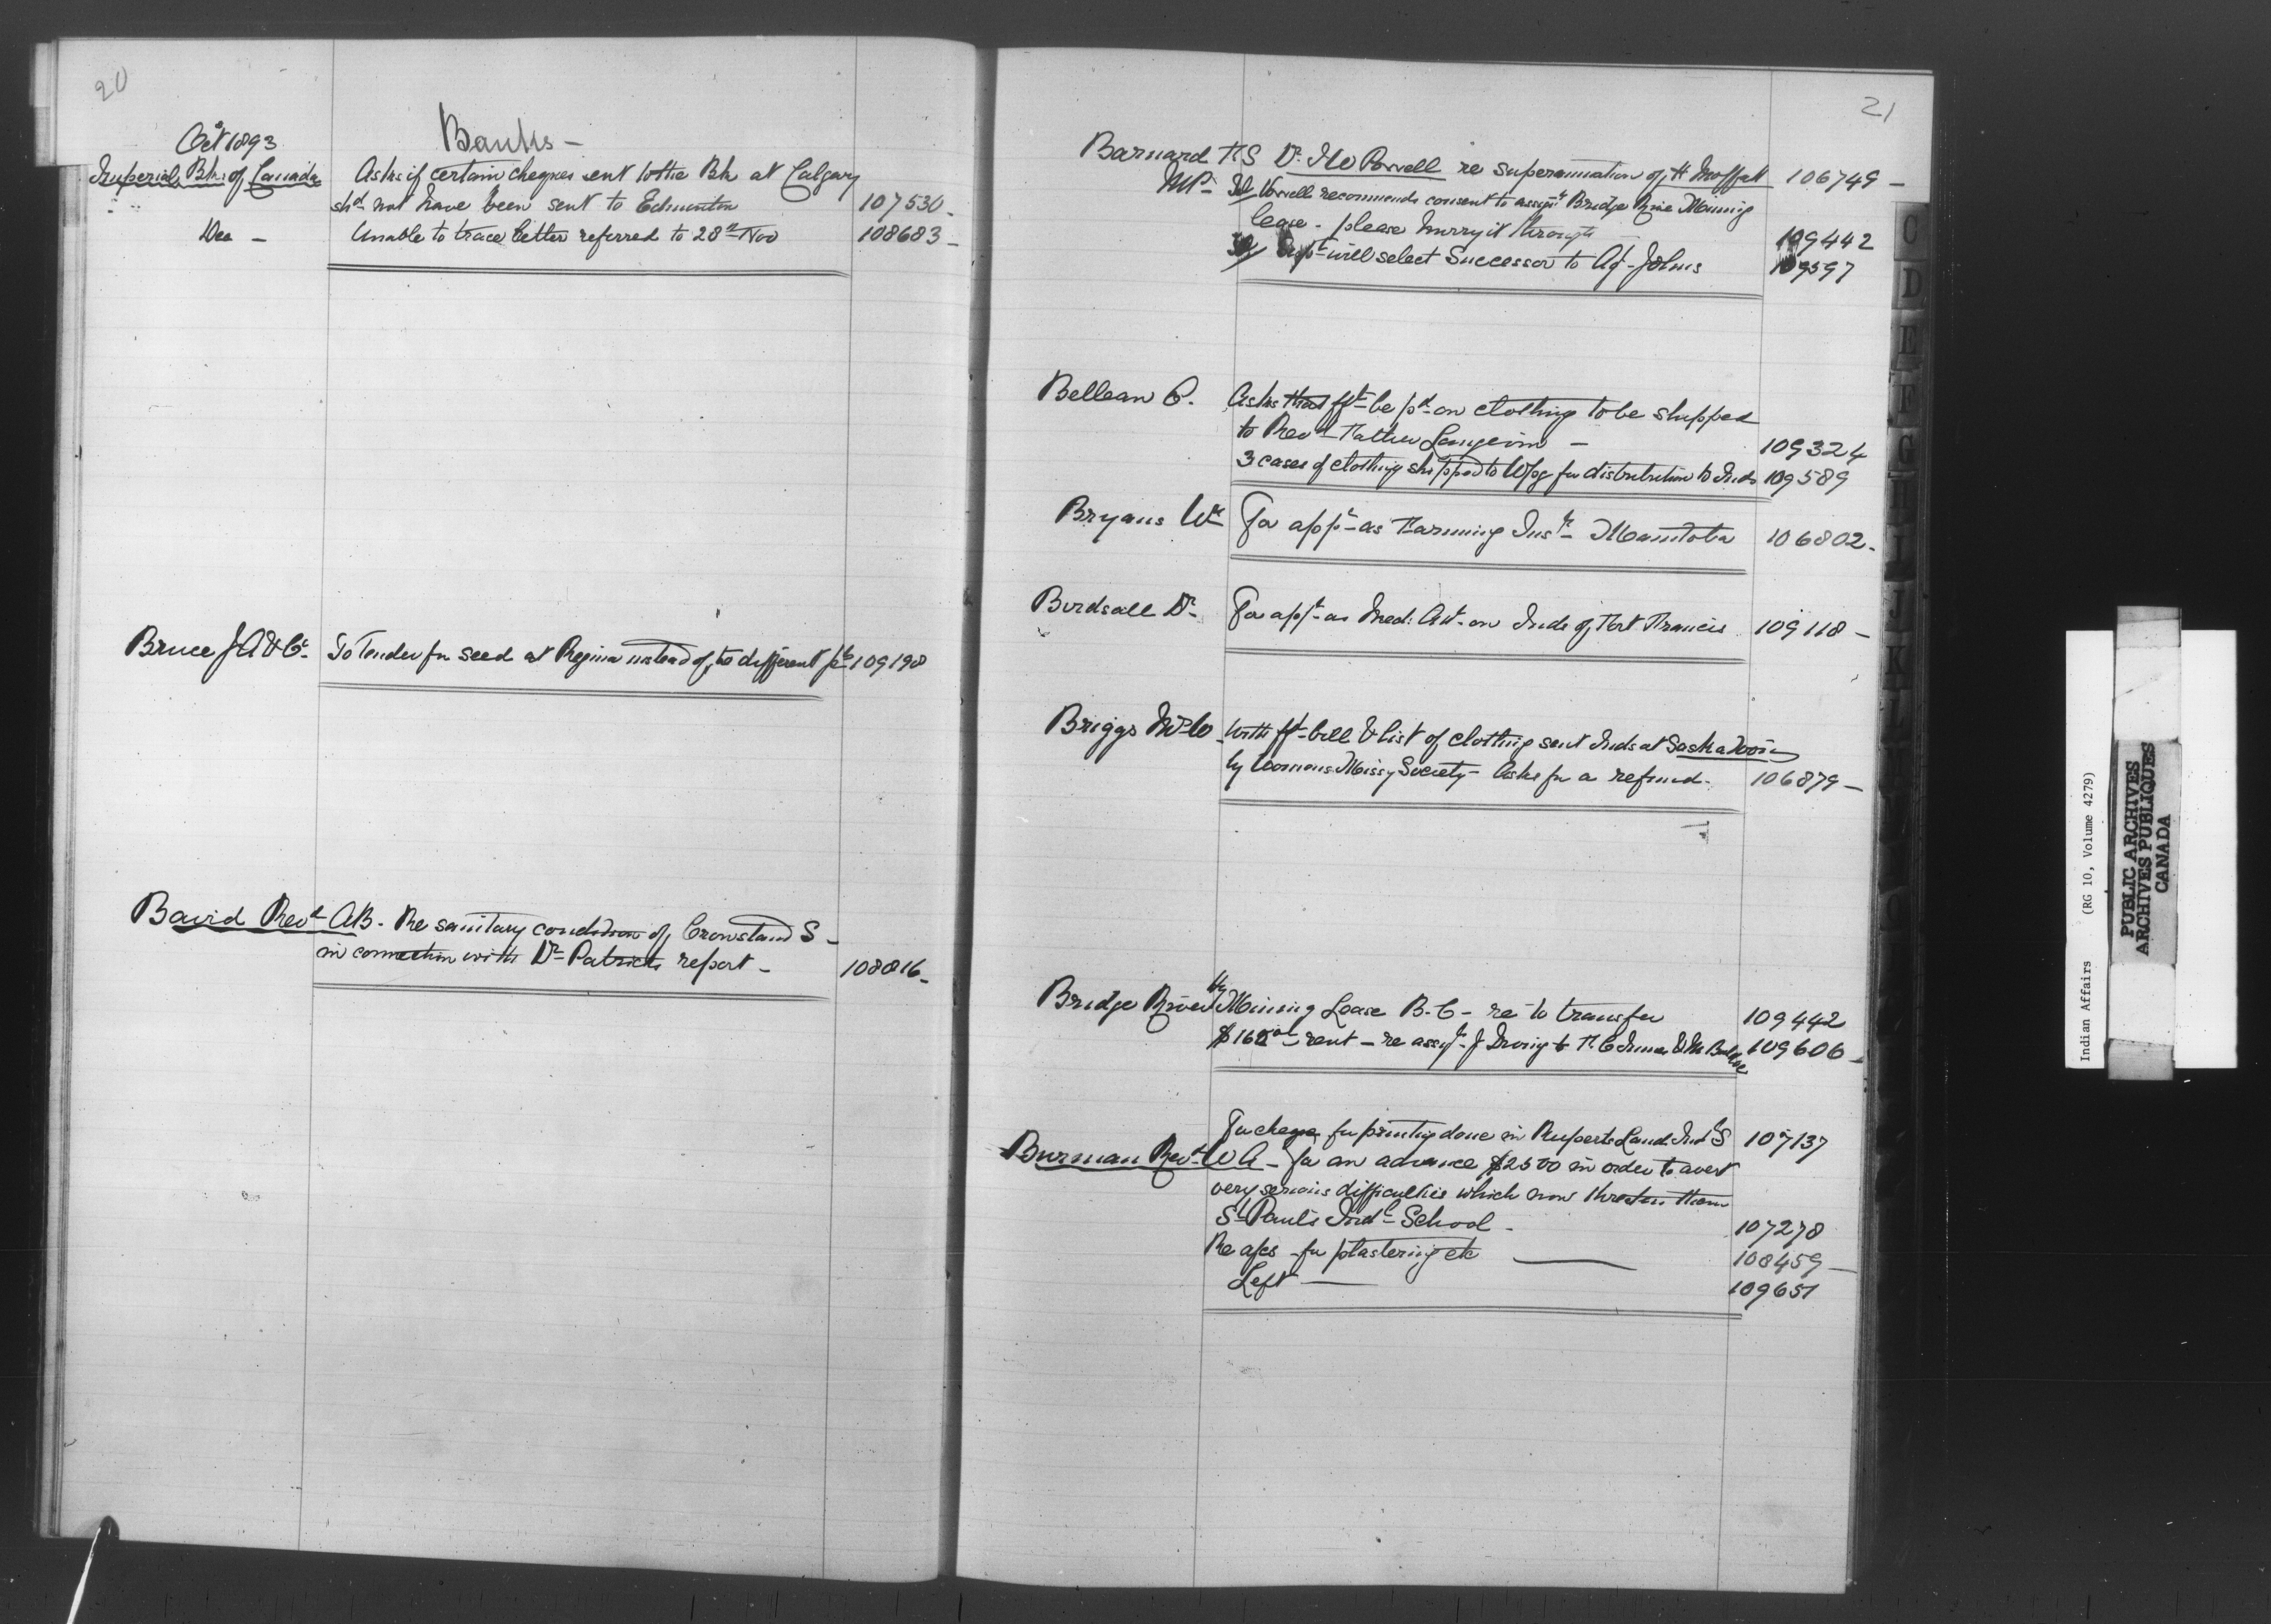 20
Oct 1893
Banks -
Imperial Bk. of Canada
Asks if certain cheques sent to the Bk at Calgary
shd not have been sent to Edmonton 107530 -
Dec - Unable to trace letter referred to 28th Nov 108683 -
Bruce J A & Co. To Tender for seed at Regina instead of, to different pts 109190
Baird Revd AB. Re sanitary condition of Crowstand S -
in connection with Dr Patricks report - 108816 -
21
Barnard F S Dr. I W Powell re superannuation of, H Moffatt 106749 -
MP - Powell recommends consent to assignt Bridge River Mining
lease - please hurry it through 109442
Dept will select Successor to Agt Johns 109597
Belleau C. Asks that frt be pd on clothing to be shipped
to Revd Father Langevin - 109324
3 cases of clothing shipped to Wpg for distribution to Inds 109589
Bryans Wm For appt as Farming Instr Manitoba 106802 -
Birdsall Dr For appt as Med: Att on Inds of, Fort Francis 109118 -
Briggs Mrs W - With frt bill & list of clothing sent Inds at Saskatoon
by Womens Missy Society - Asks for a refund - 106879 -
Bridge River Hy Mining Lease B. C - re to transfer 109442
rent - re assigt J Irving to 109606 -
For cheque for printing done in Ruperts Land Indl S 107137
Burman Revd W A - For an advance $2500 in order to avert
very serious difficulties which now threaten them
St Pauls Indl School - 107278
Re a/cs for plastering etc 108459 -
Left 109651
C
D
E
F
G
H
I
J
K
L
Indian Affairs (RG 10, Volume 4279)
PUBLIC ARCHIVES
ARCHIVES PUBLIQUES
CANADA